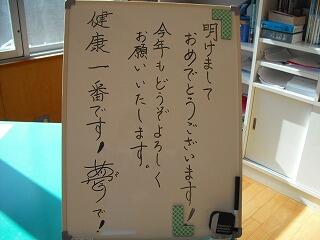 明けまして
おめでとうございます!
今年もどうぞよろしく
お願いいたします。
健康一番です!夢で!